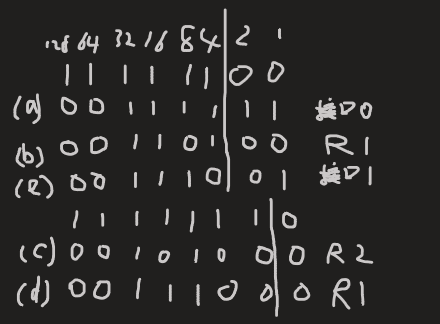 128 64 32 16 8 4 2 1
1 1 1 1 1 1 0 0
(a) 0 0 1 1 1 1 1 1 D0
(b) 0 0 1 1 0 1 0 0 R1
(e) 0 0 1 1 1 0 0 1 D1
1 1 1 1 1 1 1 0
(c) 0 0 1 0 1 0 0 0 R2
(d) 0 0 1 1 1 0 0 0 R1